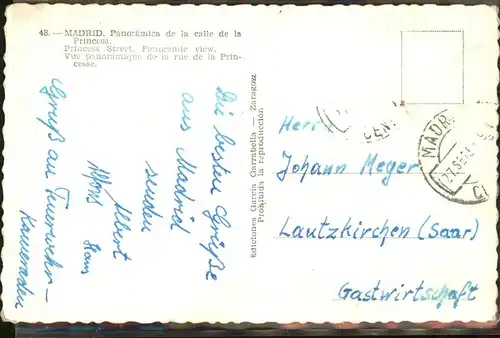 48.—MADRID. Panorámica de la calle de la
Princesa.
Princess Street, Panoramic view.
Vue panoramique de la rue de la Prin-
cesse.
Die besten Grüße
aus Madrid
senden
Albert
Alfons Hans
Gruß an Feuerwehr-
Kameraden
Ediciones García Garrabella — Zaragoza
Prohibida la reproducción
Herrn
Johann Meger
Lautzkirchen (Saar)
Gastwirtschaft
MADR